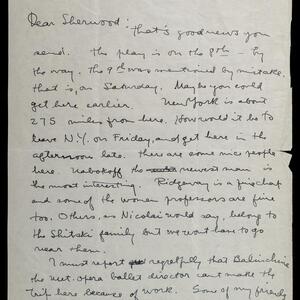 Dear Sherwood:
That's good news you
send. The play is on the 9th - by
the way. The 9th was mentioned by mistake.
that is, on Saturday. Maybe you could
get here earlier. New York is about
275 miles from here. How would it be to
leave N.Y. on Friday, and get here in the
afternoon late. there are some nice people
here. Nabokoff the newest man is
the most interesting. Ridgeway is a fine chap
and some of the women professors are fine
too. Others, as Nicolai would say, belong to
the Shitski family but we wont have to go
near them.
I must report regretfully that Balinchine
the Met. opera ballet director cant make the
trip here because of work. Some of my friends